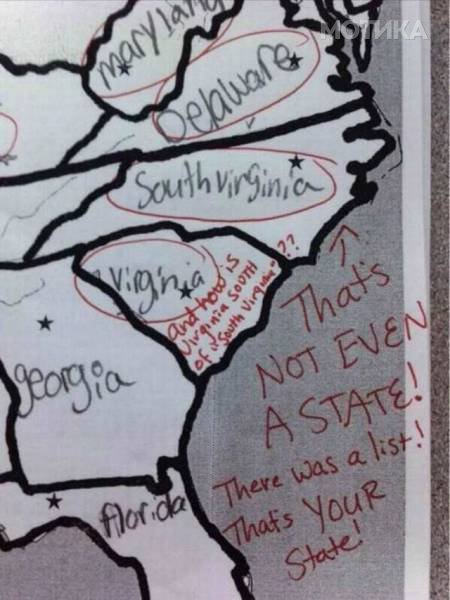 МОТИКА
maryland
Delaware
South virginia
virginia
and how is
virginia SOUTH
of "South Virginia"??
georgia
florida
That's
NOT EVEN
A STATE!
There was a list!
That's YOUR
State!